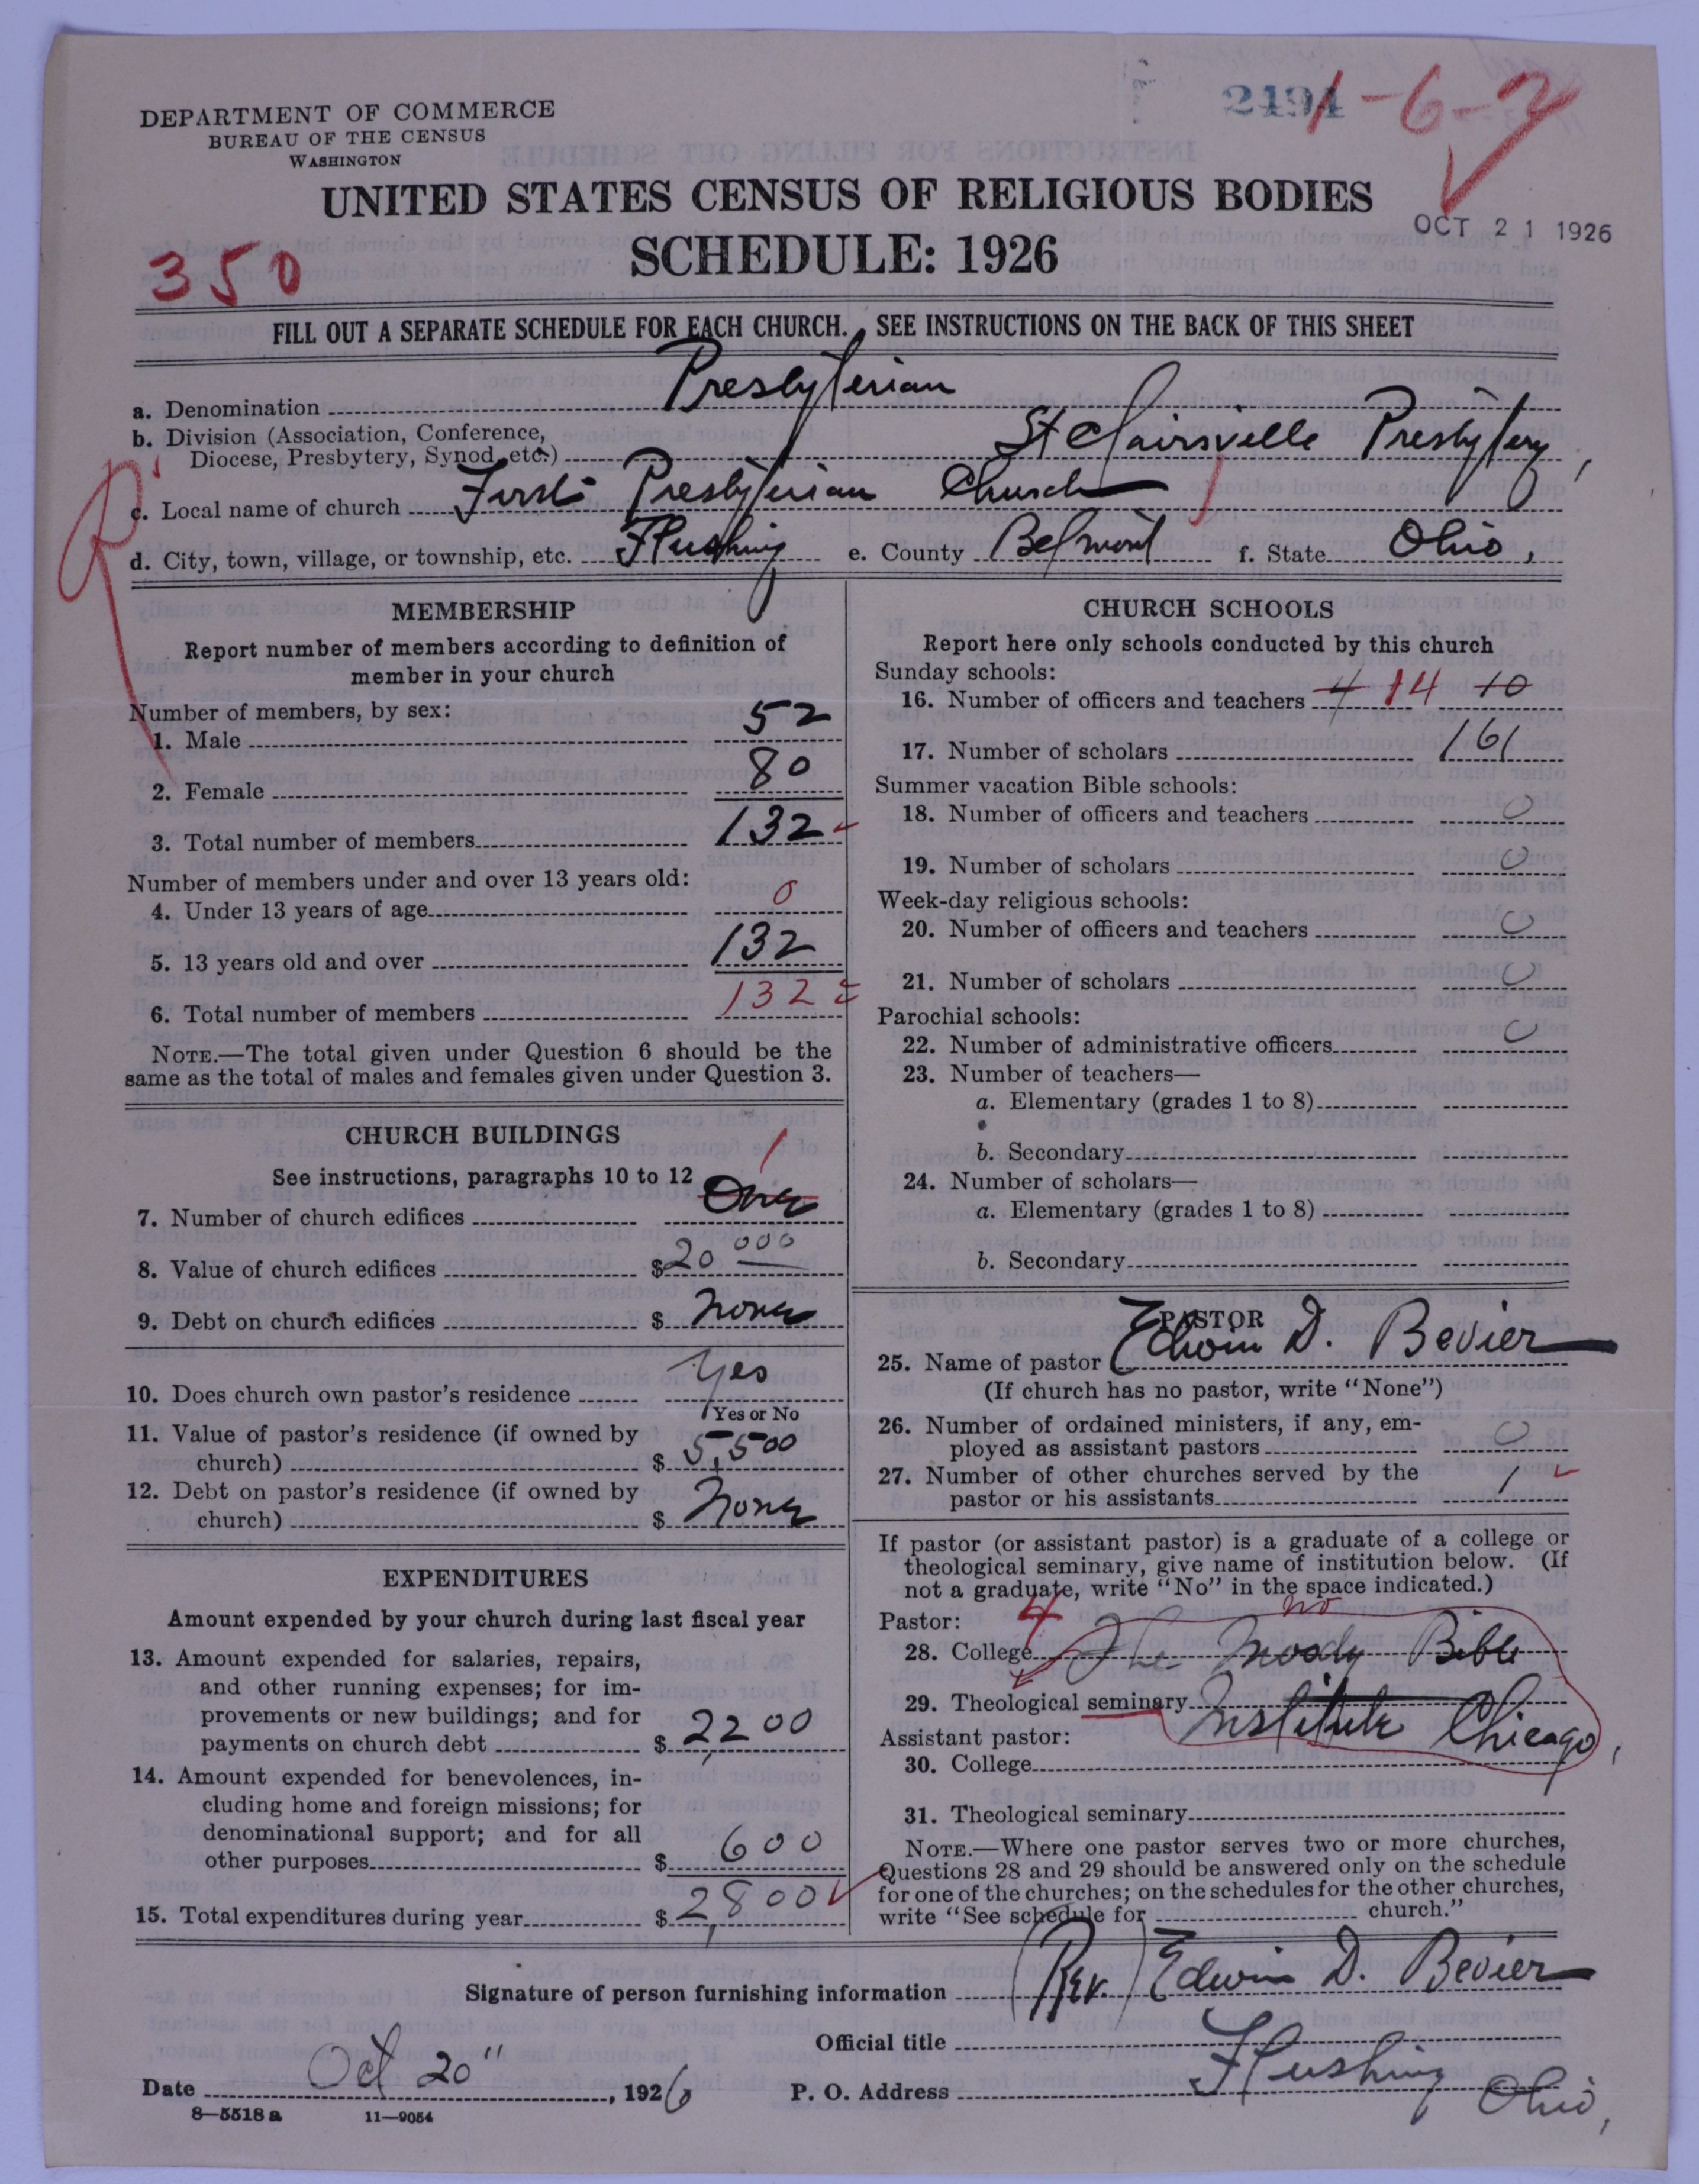 DEPARTMENT OF COMMERCE
BUREAU OF THE CENSUS
WASHINGTON
2494 1-6-2
UNITED STATES CENSUS OF RELIGIOUS BODIES
SCHEDULE: 1926
OCT 21 1926
350
FILL OUT A SEPARATE SCHEDULE FOR EACH CHURCH. SEE INSTRUCTIONS ON THE BACK OF THIS SHEET
a. Denomination Presbyterian
b. Division (Association, Conference,
Diocese, Presbytery, Synod, etc.) St Clairsville Presbytery,
c. Local name of church First Presbyterian Church
d. City, town, village, or township, etc. Flushing e. County Belmont f. State Ohio,
MEMBERSHIP
Report number of members according to definition of
member in your church
Number of members, by sex:
1. Male 52
2. Female 80
3. Total number of members 132
Number of members under and over 13 years old:
4. Under 13 years of age 0
5. 13 years old and over 132
6. Total number of members 132
NOTE.—The total given under Question 6 should be the
same as the total of males and females given under Question 3.
CHURCH BUILDINGS
See instructions, paragraphs 10 to 12 1
7. Number of church edifices One
8. Value of church edifices $20 000
9. Debt on church edifices $ None
10. Does church own pastor's residence Yes
Yes or No
11. Value of pastor's residence (if owned by
church) $ 5,500
12. Debt on pastor's residence (if owned by
church) $ None
EXPENDITURES
Amount expended by your church during last fiscal year
13. Amount expended for salaries, repairs,
and other running expenses; for im-
provements or new buildings; and for
payments on church debt $ 2,200
14. Amount expended for benevolences, in-
cluding home and foreign missions; for
denominational support; and for all
other purposes $ 600
15. Total expenditures during year $ 2,800
CHURCH SCHOOLS
Report here only schools conducted by this church
Sunday schools:
16. Number of officers and teachers 4 14 10
17. Number of scholars 161
Summer vacation Bible schools:
18. Number of officers and teachers 0
19. Number of scholars 0
Week-day religious schools:
20. Number of officers and teachers 0
21. Number of scholars 0
Parochial schools:
22. Number of administrative officers 0
23. Number of teachers—
a. Elementary (grades 1 to 8)
b. Secondary
24. Number of scholars—
a. Elementary (grades 1 to 8)
b. Secondary
PASTOR
25. Name of pastor Edwin D. Bevier
(If church has no pastor, write "None")
26. Number of ordained ministers, if any, em-
ployed as assistant pastors 0
27. Number of other churches served by the
pastor or his assistants 1
If pastor (or assistant pastor) is a graduate of a college or
theological seminary, give name of institution below. (If
not a graduate, write "No" in the space indicated.)
Pastor: 4 no
28. College The Moody Bible
29. Theological seminary Institute Chicago,
Assistant pastor:
30. College
31. Theological seminary
NOTE.—Where one pastor serves two or more churches,
Questions 28 and 29 should be answered only on the schedule
for one of the churches; on the schedules for the other churches,
write "See schedule for church."
Signature of person furnishing information (Rev.) Edwin D. Bevier
Official title
Date Oct 20", 1926 P. O. Address Flushing Ohio,
8—5518 a 11—9054